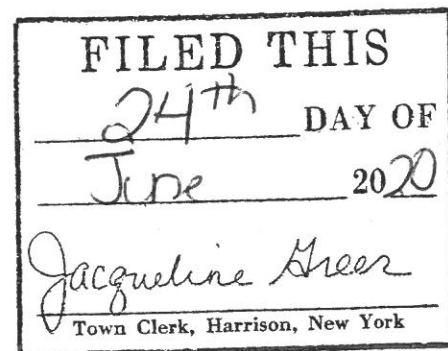 FILED THIS
24th DAY OF
June 2020
Jacqueline Greer
Town Clerk, Harrison, New York